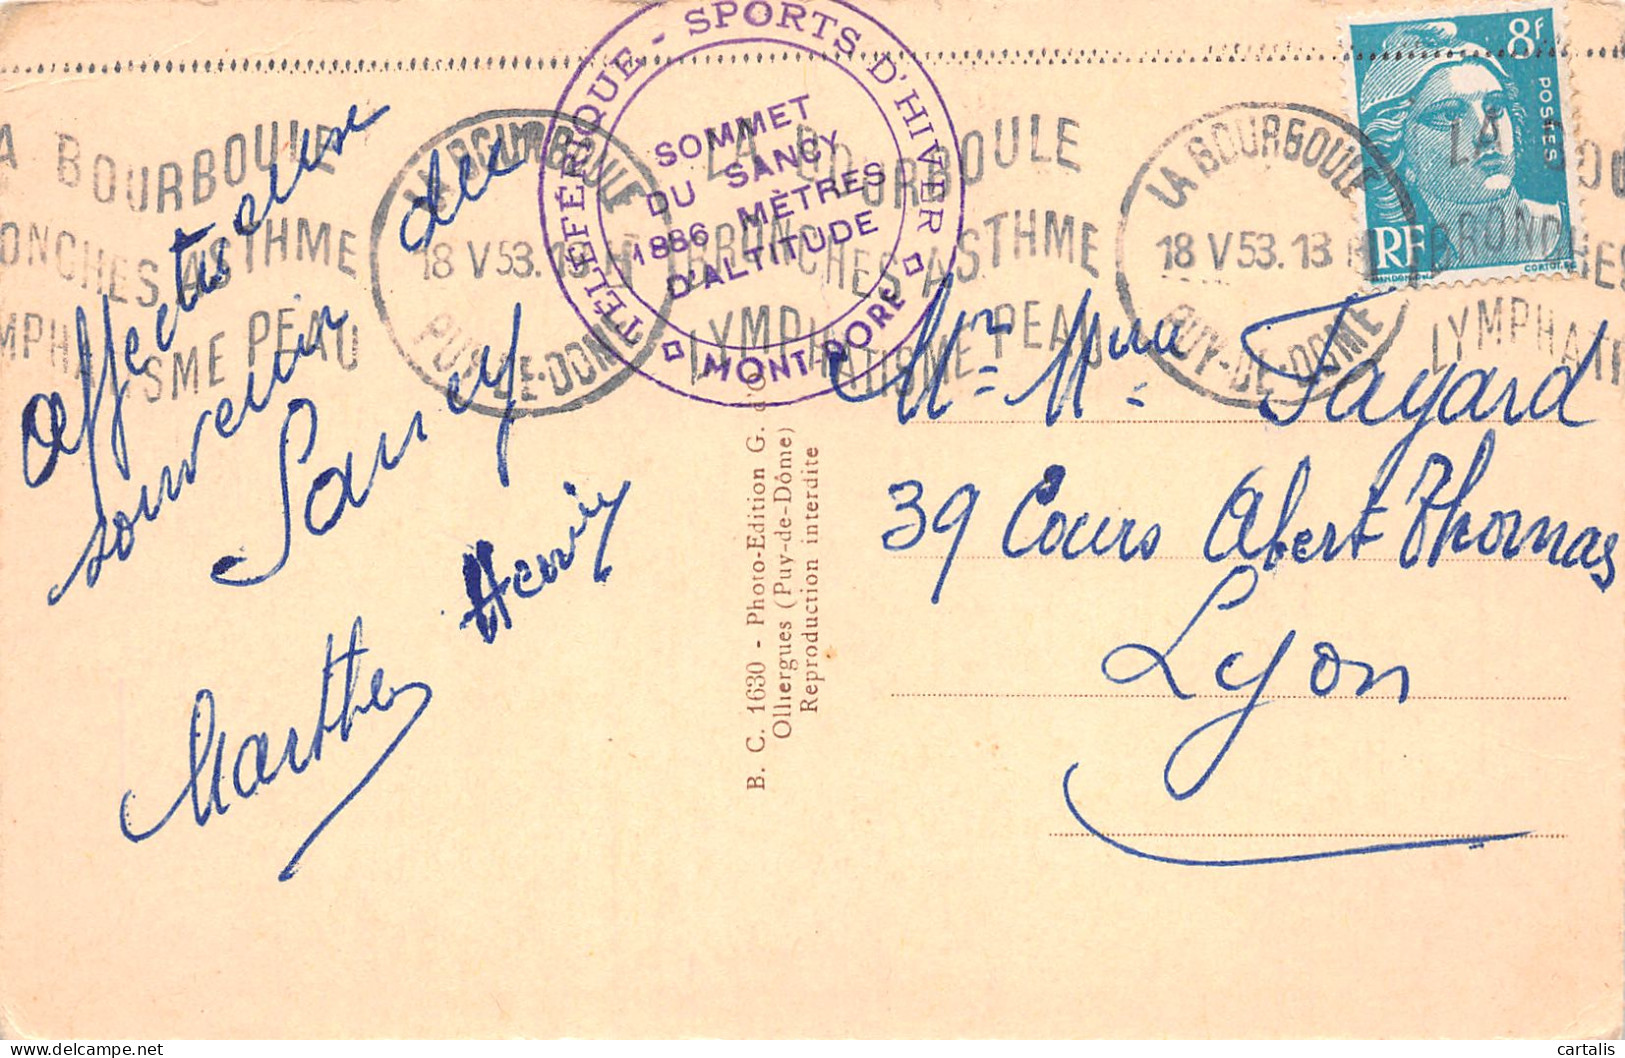 Affectueux
souvenir du
Sancy
Marthe Henry
TÉLÉFÉRIQUE - SPORTS D'HIVER
MONT-DORE
SOMMET
DU SANCY
1886 MÈTRES
D'ALTITUDE
LA BOURBOULE
BRONCHES ASTHME
LYMPHATISME PEAU
LA BOURBOULE
18 V 53. 13 H
PUY-DE-DOME
LA BOURBOULE
BRONCHES ASTHME
LYMPHATISME PEAU
LA BOURBOULE
18 V 53. 13
PUY-DE-DOME
LA BOU
BRONCHES
LYMPHATI
8F
POSTES
RF
GANDON
CORTOT
B. C. 1630 - Photo-Edition G. d'O
Olliergues (Puy-de-Dôme)
Reproduction interdite
Mr Mme Fayard
39 Cours Albert Thomas
Lyon
cartalis